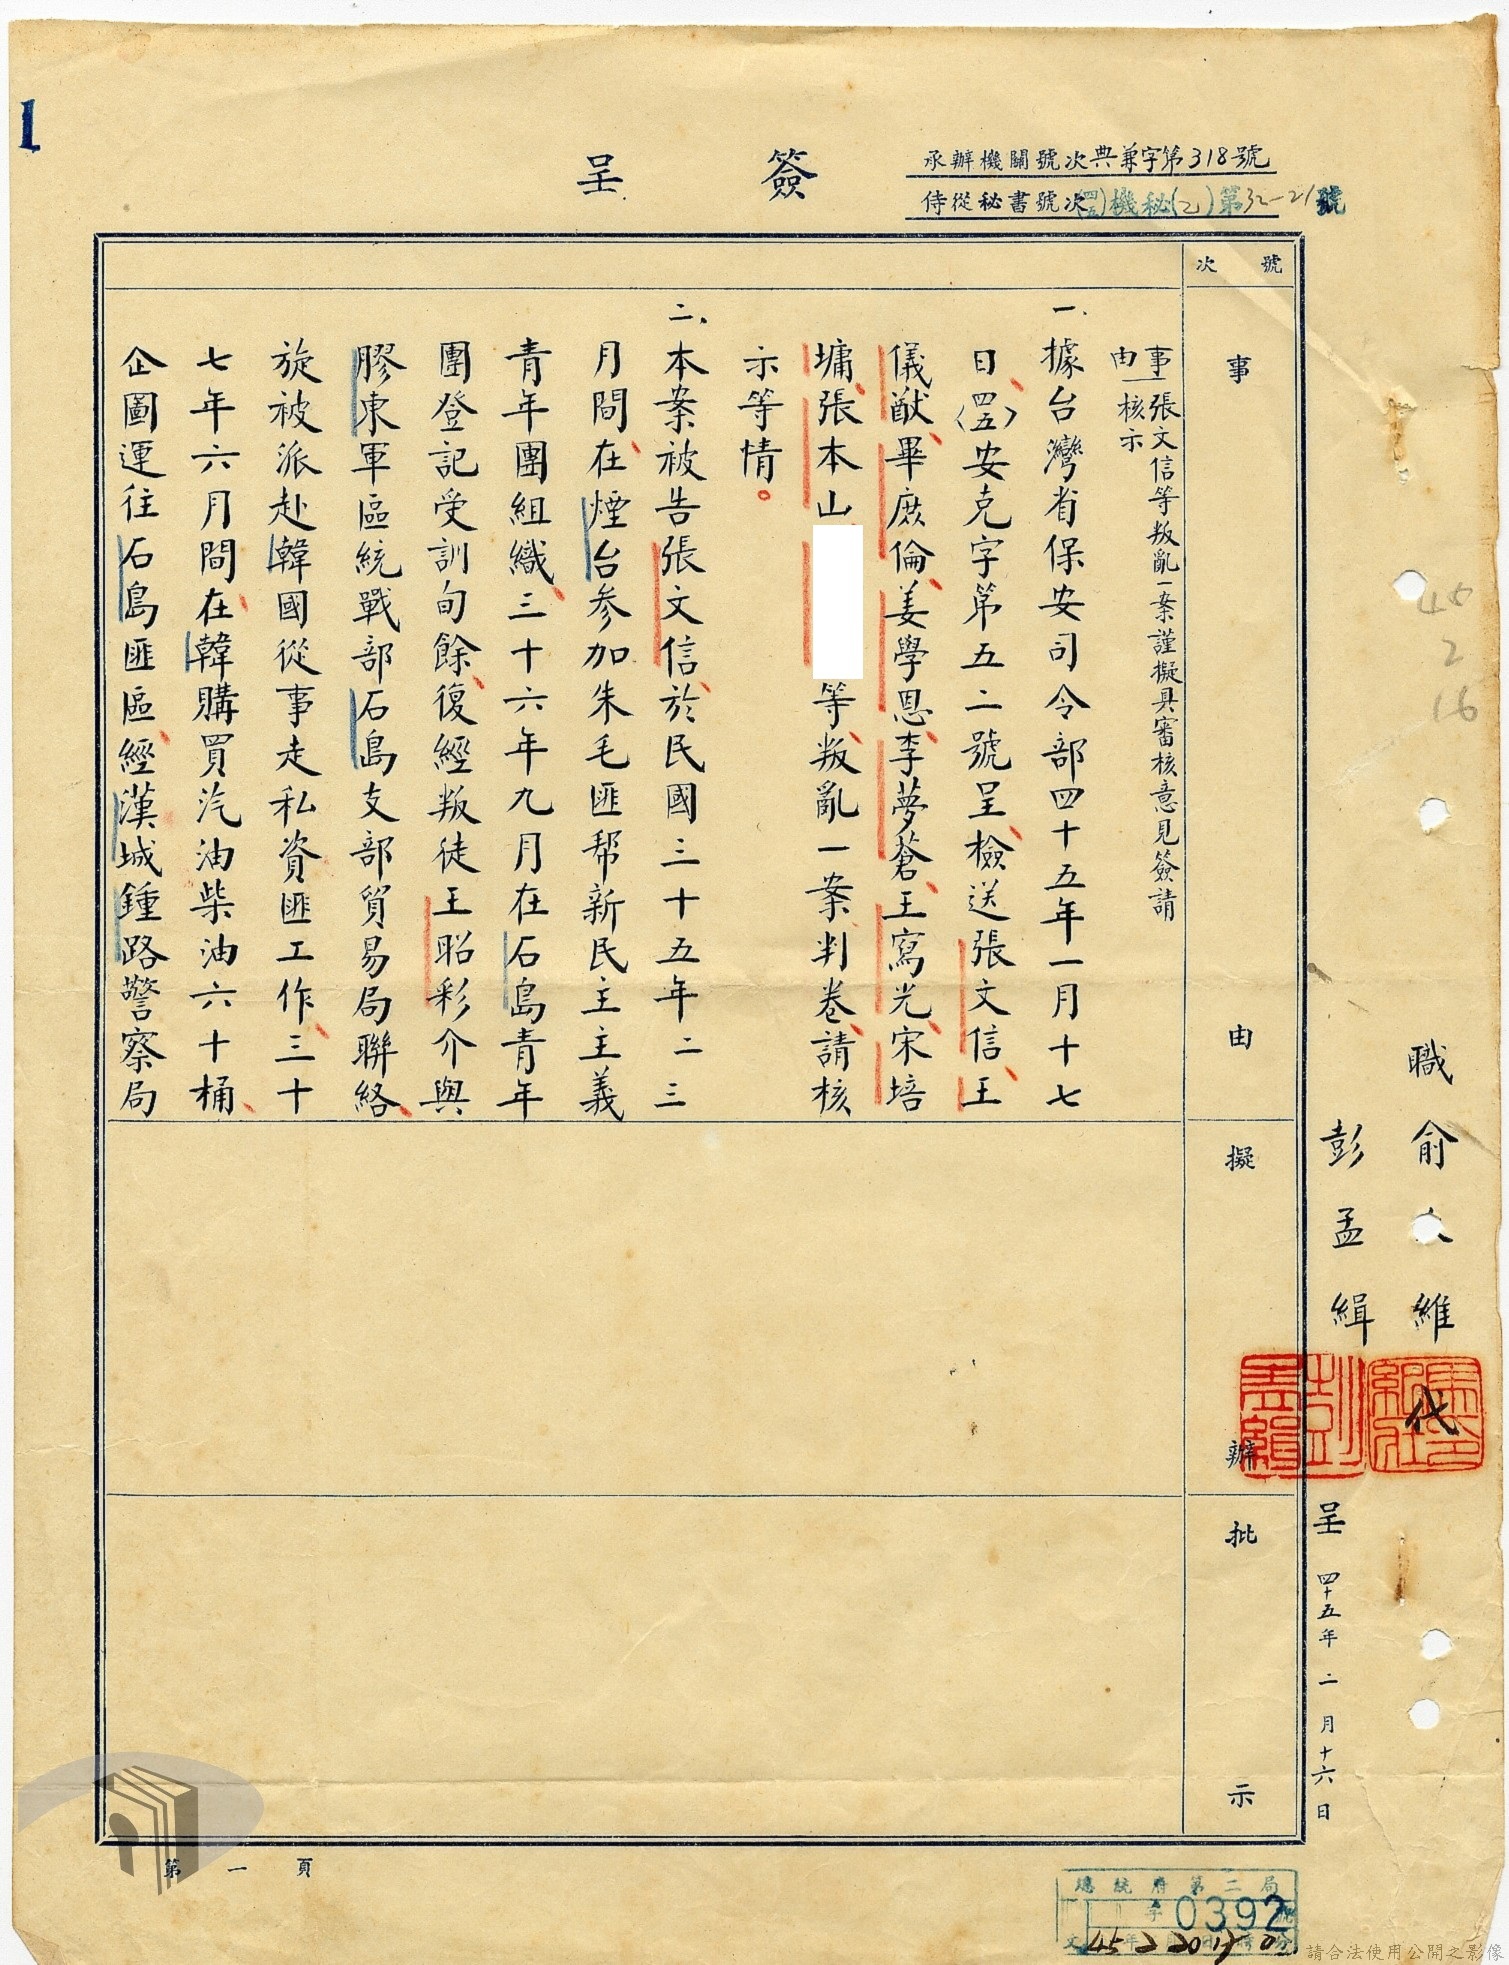 1
簽呈
承辦機關號次典兼字第318號
侍從秘書號次(四五)機秘(乙)第32-21號
號次
事由
擬辦
批示
事由
張文信等叛亂一案謹擬具審核意見簽請
核示
一、據台灣省保安司令部四十五年一月十七
日(四五)安克字第五二號呈檢送張文信、王
儀猷、畢庶倫、姜學恩、李夢蒼、王寫光、宋培
墉、張本山
等叛亂一案判卷請核
示等情。
二、本案被告張文信、於民國三十五年二三
月間在煙台參加朱毛匪幫新民主主義
青年團組織、三十六年九月在石島青年
團登記受訓旬餘、復經叛徒王昭彩介與
膠東軍區統戰部石島支部貿易局聯絡、
旋被派赴韓國從事走私資匪工作、三十
七年六月間在韓購買汽油柴油六十桶、
企圖運往石島匪區、經漢城鍾路警察局
職俞大維
代
彭孟緝
呈
四十五年二月十六日
45
2
16
第一頁
總統府第二局
字0392號
請合法使用公開之影像